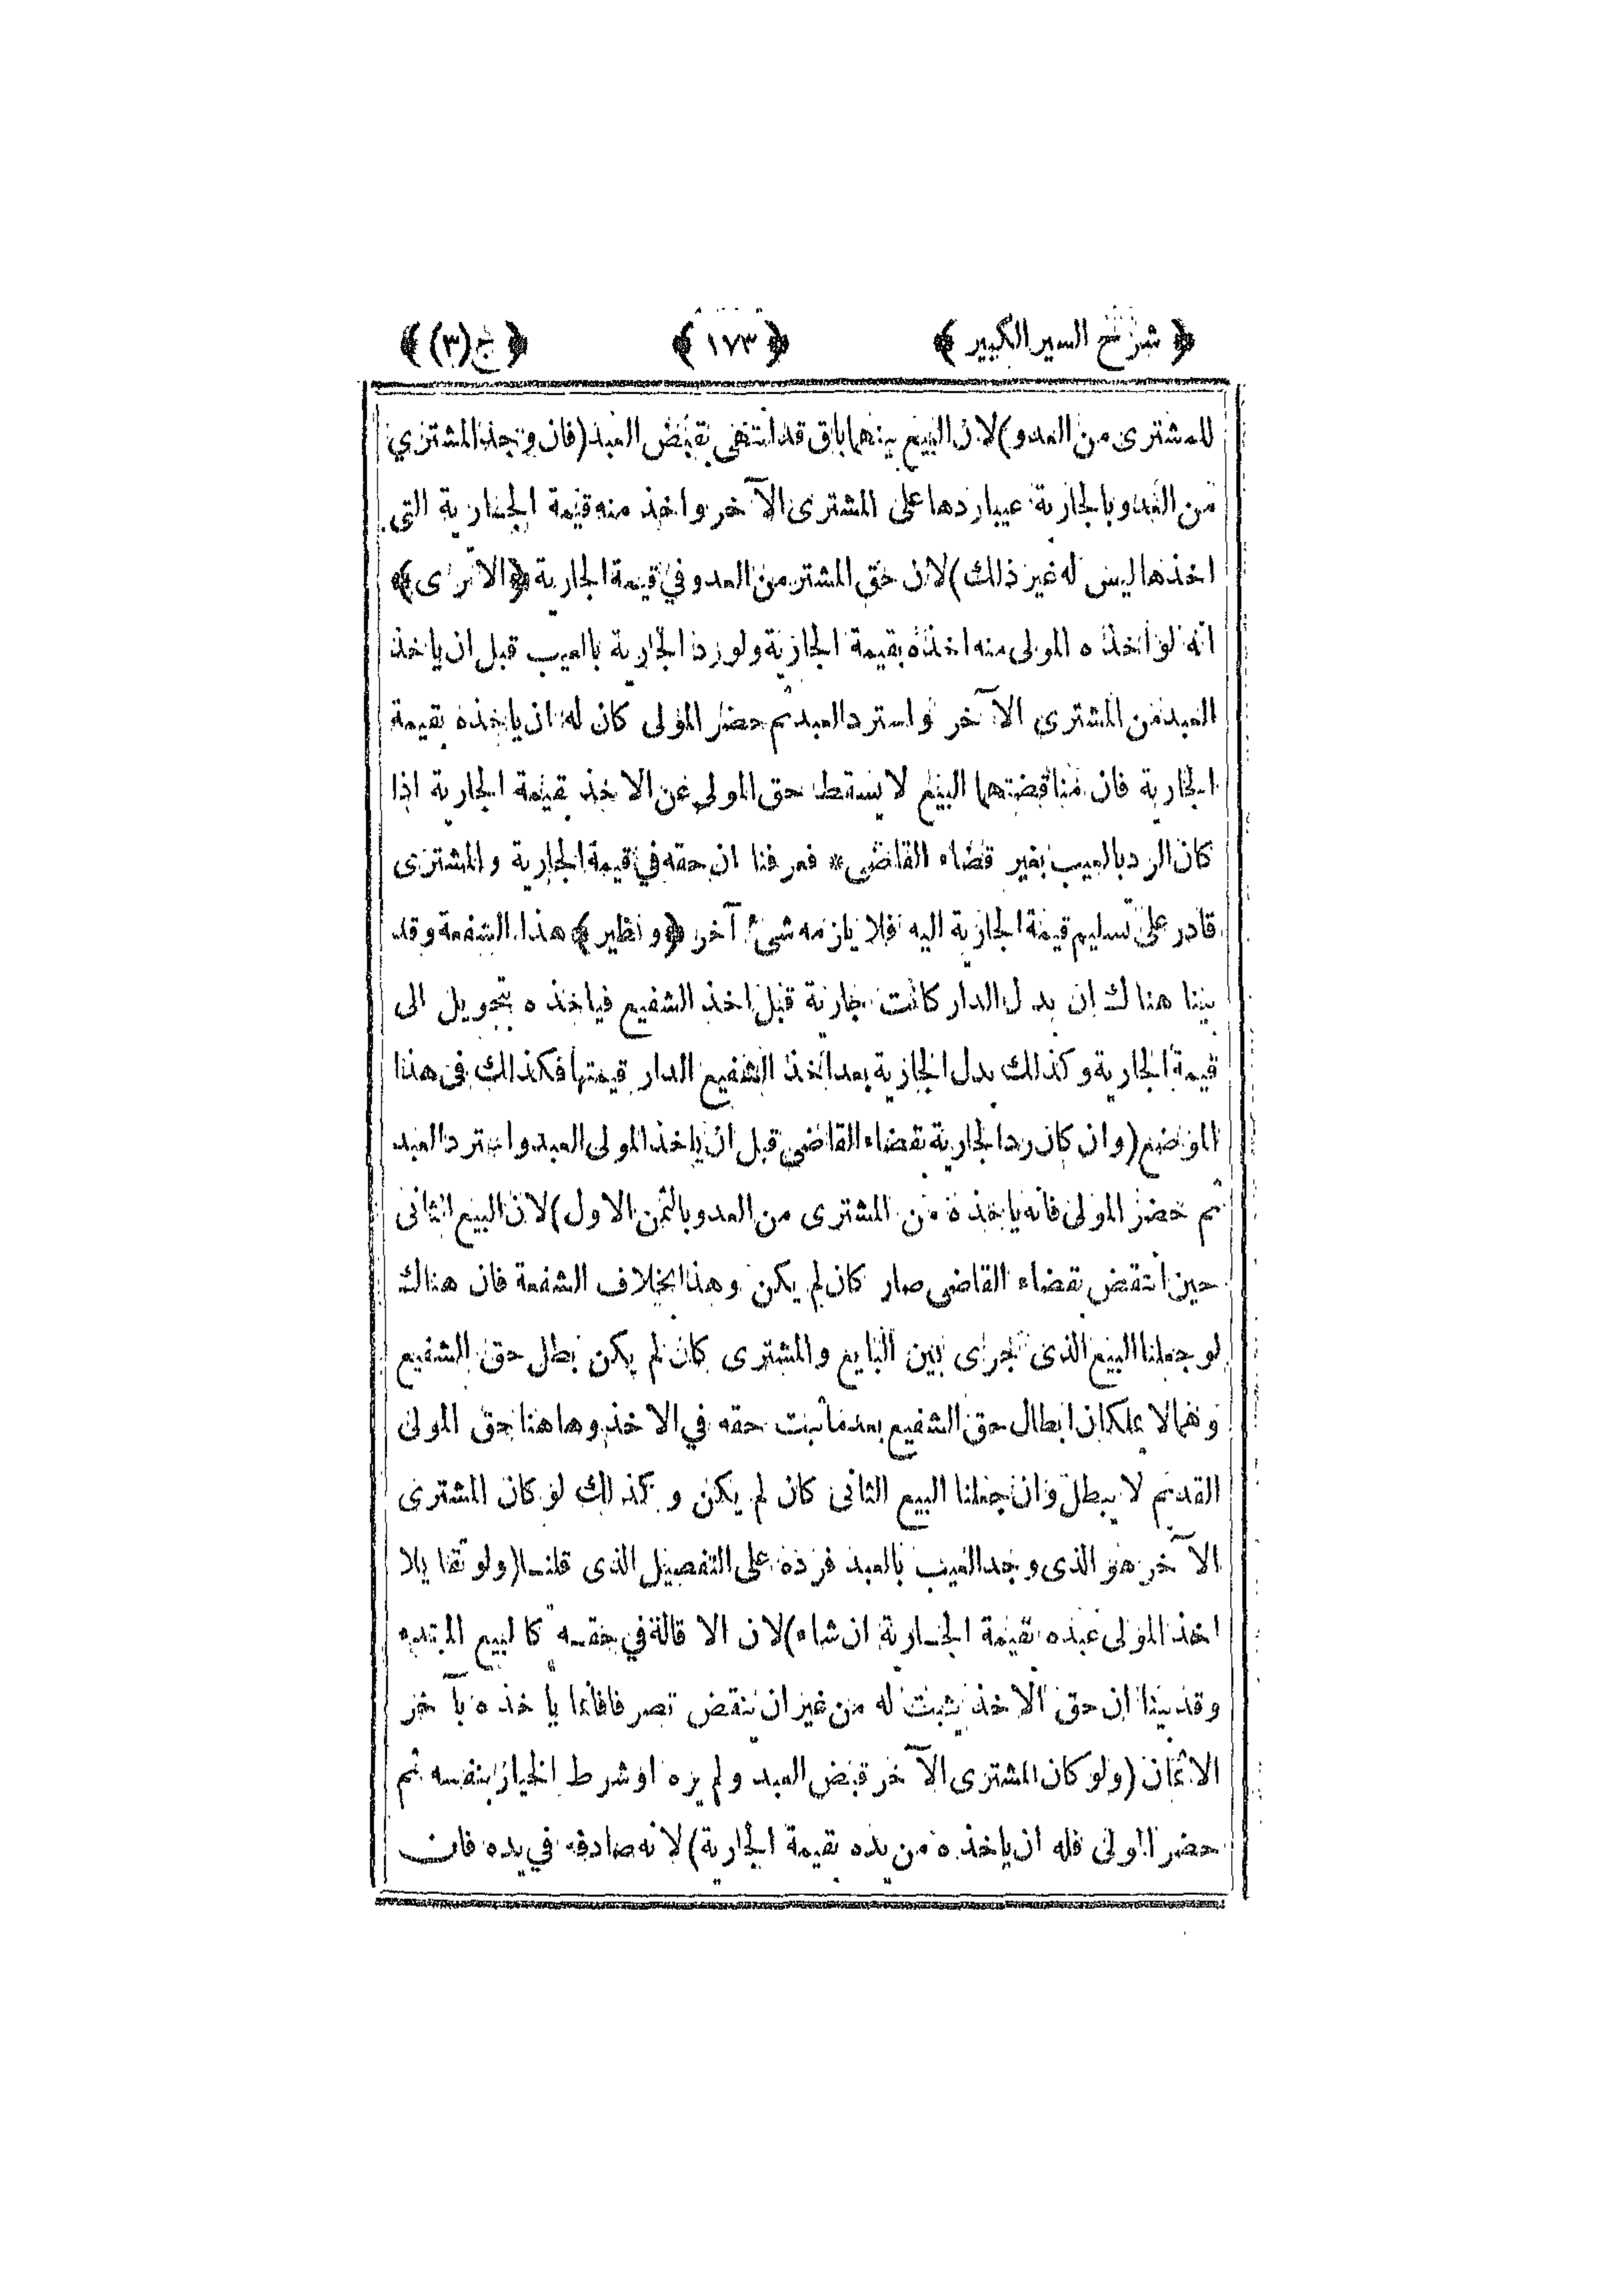 ﴿ شرح السير الكبير ﴾ ﴿ ١٧٣ ﴾ ﴿ ج (٣) ﴾
للمشترى من العدو) لان البيع بينهما باق قد انتهى بقبض العبد (فان وجد المشترى
من العدو بالجارية عيبا ردها على المشترى الآخر واخذ منه قيمة الجارية التى
اخذها ليس له غير ذلك) لان حق المشتر من العدو في قيمة الجارية ﴿الاترى﴾
انه لو اخذه المولى منه اخذه بقيمة الجارية ولو رد الجارية بالعيب قبل ان ياخذ
العبد من المشترى الآخر واسترد العبد ثم حضر المولى كان له ان ياخذه بقيمة
الجارية فان مناقضتهما البيع لا يسقط حق المولى عن الاخذ بقيمة الجارية اذا
كان الرد بالعيب بغير قضاء القاضى * فعرفنا ان حقه في قيمة الجارية والمشترى
قادر على تسليم قيمة الجارية اليه فلا يلزمه شئ آخر ﴿ونظير﴾ هذا الشفعة وقد
بينا هناك ان بدل الدار كانت جارية قبل اخذ الشفيع فياخذه بتحويل الى
قيمة الجارية وكذلك بدل الجارية بعد اخذ الشفيع الدار قيمتها فكذلك فى هذا
الموضع (وان كان رد الجارية بقضاء القاضى قبل ان ياخذ المولى العبد واسترد العبد
ثم حضر المولى فانه ياخذه من المشترى من العدو بالثمن الاول) لان البيع الثانى
حين انتقض بقضاء القاضى صار كان لم يكن وهذا بخلاف الشفعة فان هناك
لو جعلنا البيع الذى جرى بين البايع والمشترى كان لم يكن بطل حق الشفيع
وهما لا يملكان ابطال حق الشفيع بعد ما ثبت حقه في الاخذ وهاهنا حق المولى
القديم لا يبطل وان جعلنا البيع الثانى كان لم يكن وكذلك لو كان المشترى
الآخر هو الذى وجد العيب بالعبد فرده على التفصيل الذى قلنا (ولو تقايلا
اخذ المولى عبده بقيمة الجارية ان شاء) لان الاقالة في حقه كالبيع المبتدء
وقد بينا ان حق الاخذ يثبت له من غير ان ينقض تصرفا فانما ياخذه بآخر
الاثمان (ولو كان المشترى الآخر قبض العبد ولم يره او شرط الخيار بنفسه ثم
حضر المولى فله ان ياخذه من يده بقيمة الجارية) لانه صادفه في يده فان